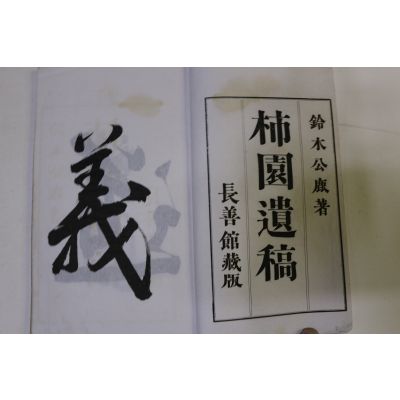 鈴木公㢘著
柿園遺稿
長善館藏版
義